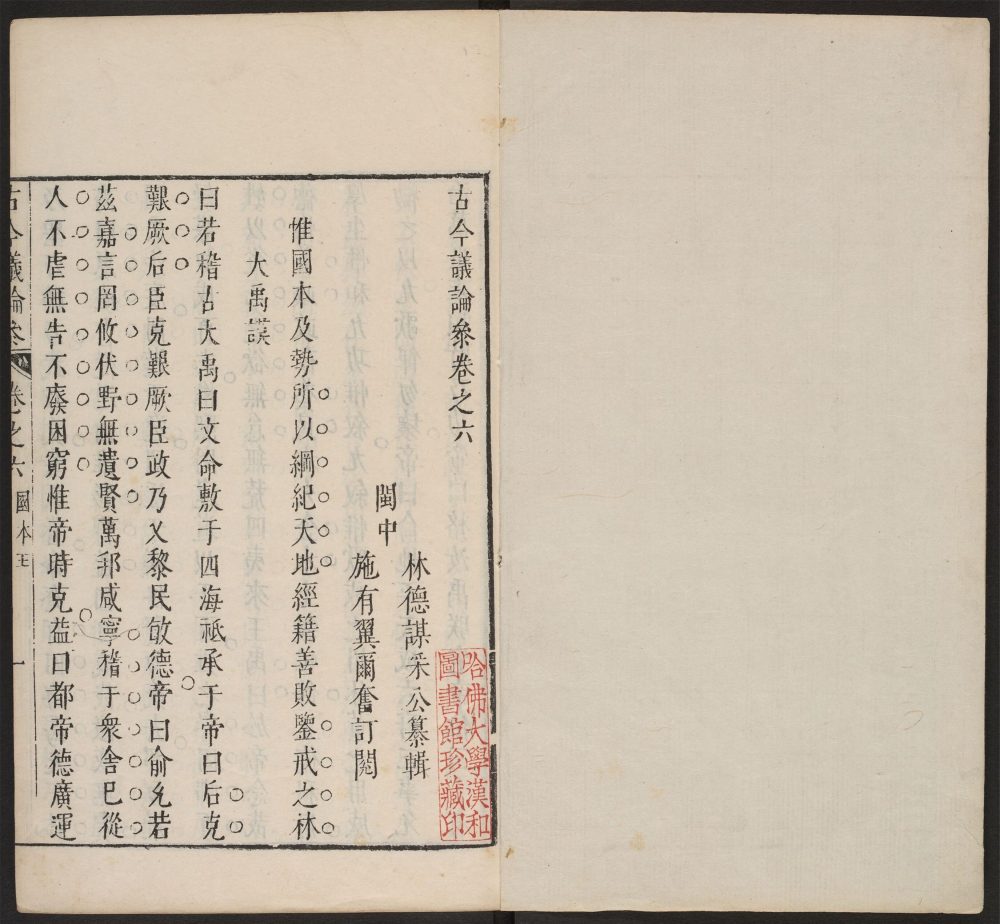 古今議論參卷之六
閩中
林德謀采公纂輯
施有翼爾奮訂閱
惟國本及勢所以綱紀天地經籍善敗鑒戒之林
大禹謨
曰若稽古大禹曰文命敷于四海祗承于帝曰后克
艱厥后臣克艱厥臣政乃乂黎民敏德帝曰俞允若
茲嘉言罔攸伏野無遺賢萬邦咸寧稽于衆舍已從
人不虐無告不廢困窮惟帝時克益曰都帝德廣運
古今議論參 卷之六 國本 一
哈佛大學漢和
圖書館珍藏印